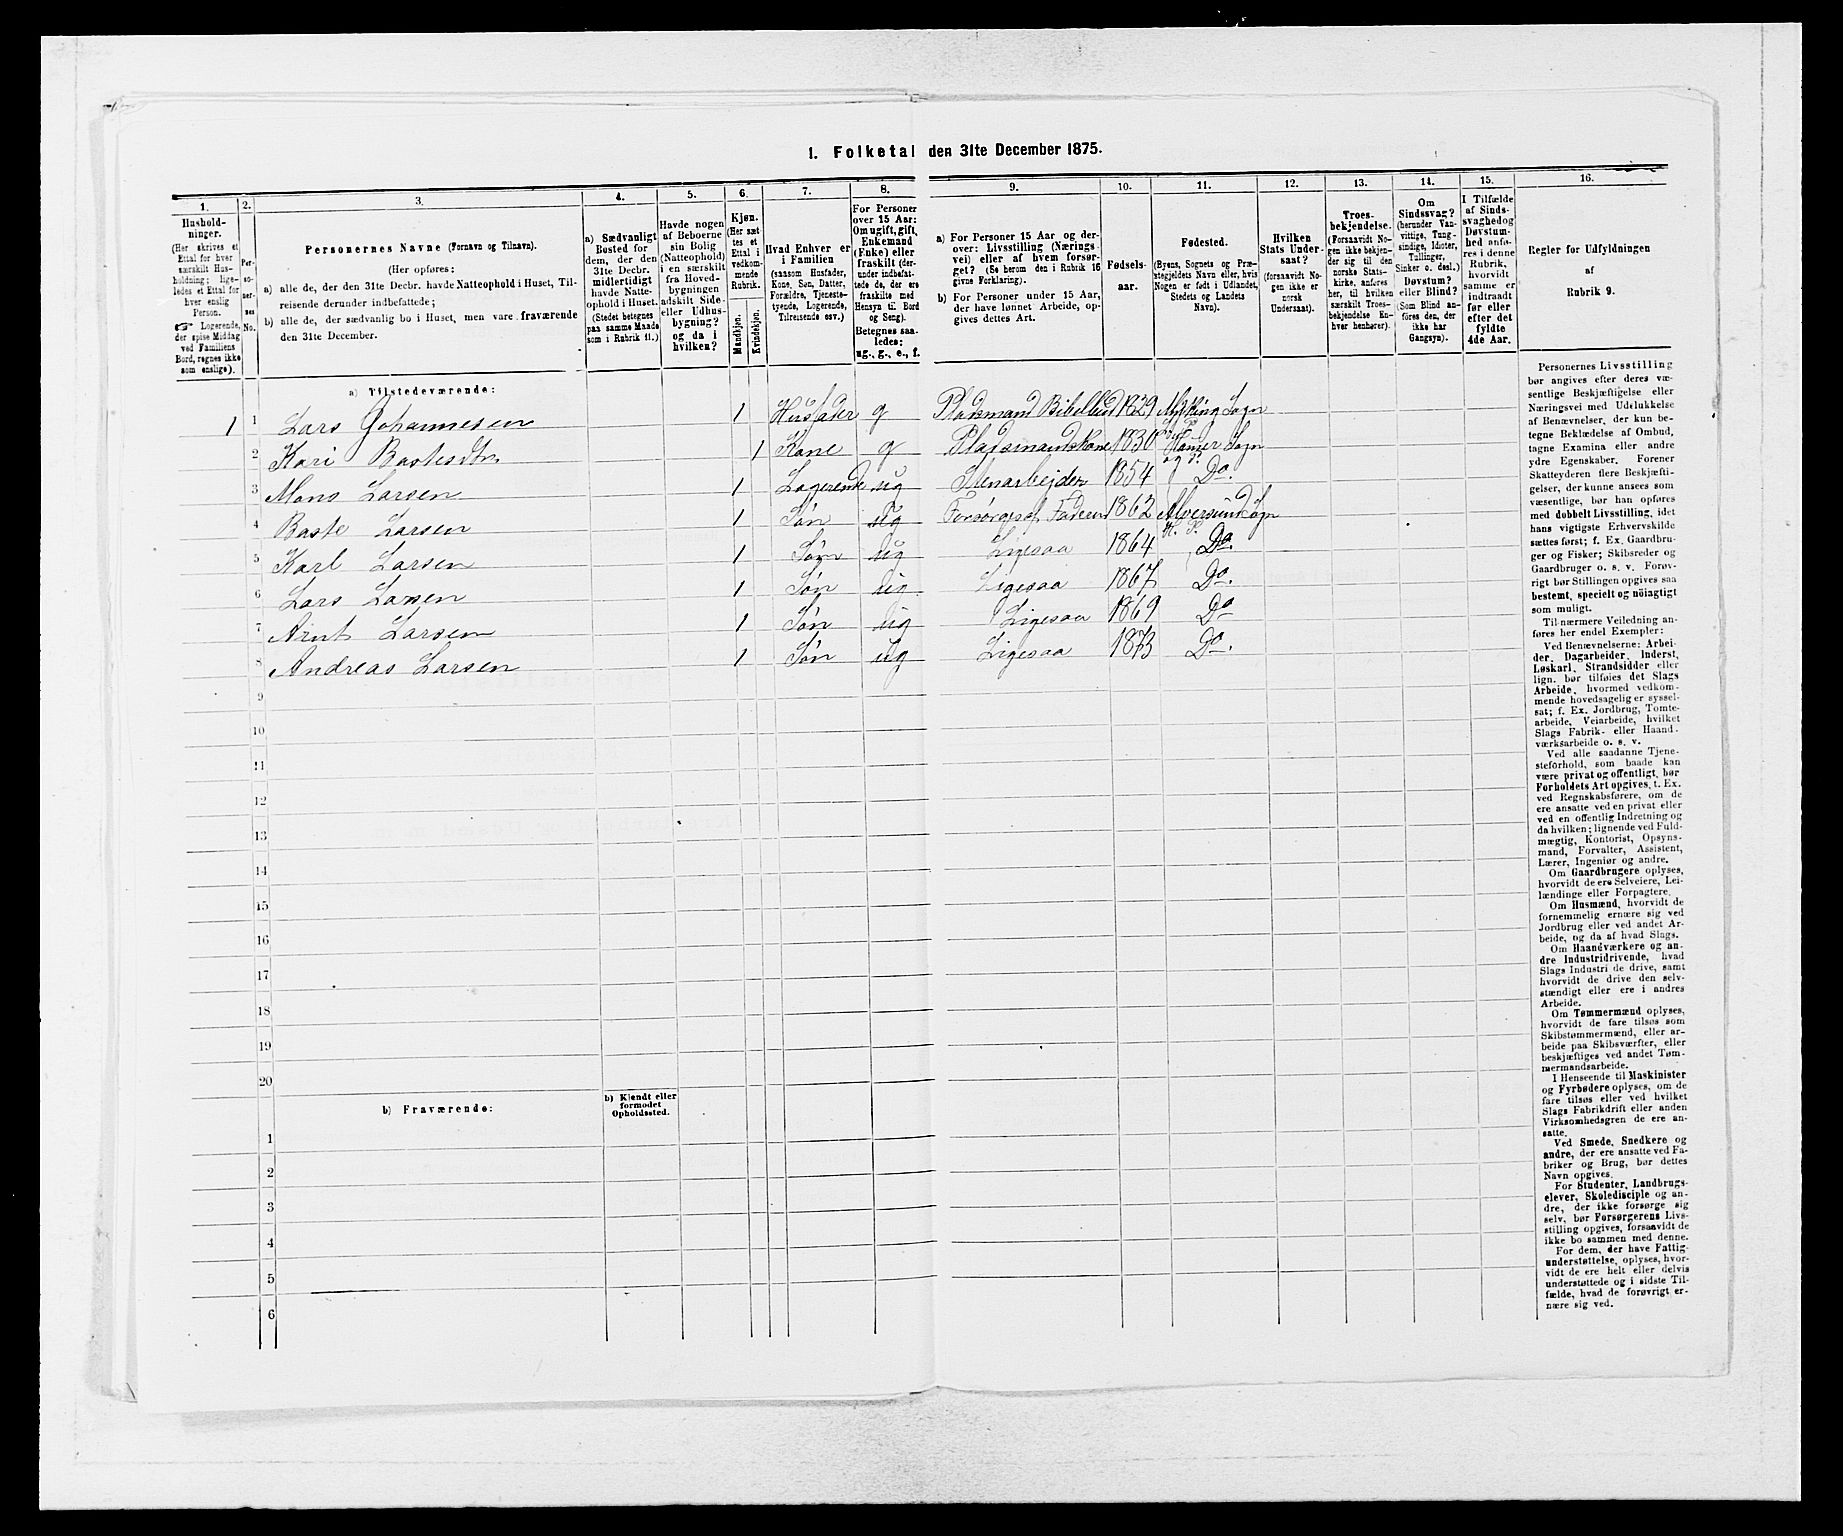 1. Folketal den 31te December 1875.
1.
2.
3.
4.
5.
6.
7.
8.
9.
10.
11.
12.
13.
14.
15.
16.
Hushold-
ninger.
(Her skrives et
Ettal for hver
særskilt Hus-
holdning; lige-
ledes et Ettal for
hver enslig
Person.
☞ Logerende,
der spise Middag
ved Familiens
Bord, regnes ikke
som enslige).
Per-
so-
ner-
nes
No.
Personernes Navne (Fornavn og Tilnavn).
(Her opføres:
a) alle de, der den 31te Decbr. havde Natteophold i Huset, Til-
reisende derunder indbefattede;
b) alle de, der sædvanlig bo i Huset, men vare fraværende
den 31te December.
a) Sædvanligt
Bosted for
dem, der den
31te Decbr.
midlertidigt
havde Natte-
ophold i Huset.
(Stedet betegnes
paa samme Maade
som i Rubrik 11.)
Havde nogen
af Beboerne
sin Bolig
(Natteophold)
i en særskilt
fra Hoved-
bygningen
adskilt Side-
eller Udhus-
bygning?
og da i
hvilken?
Kjøn.
(Her sæt-
tes et
Ettal i
vedkom-
mende
Rubrik.
Mandkjøn.
Kvindekjøn.
Hvad Enhver er
i Familien
(saasom Husfader,
Kone, Søn, Datter,
Forældre, Tjeneste-
tyende, Logerende,
Tilreisende osv.)
For Personer
over 15 Aar:
Om ugift, gift,
Enkemand
(Enke) eller
fraskilt (der-
under indbefat-
tede de, der ere
fraskilte med
Hensyn til Bord
og Seng).
Betegnes saa-
ledes:
ug., g., e., f.
a) For Personer 15 Aar og der-
over: Livsstilling (Nærings-
vei) eller af hvem forsør-
get? (Se herom den i Rubrik 16
givne Forklaring).
b) For Personer under 15 Aar,
der have lønnet Arbeide, op-
gives dettes Art.
Fødsels-
aar.
Fødested.
(Byens, Sognets og Præ-
stegjeldets Navn eller, hvis
Nogen er født i Udlandet,
Stedets og Landets
Navn).
Hvilken
Stats Under-
saat?
(forsaavidt No-
gen ikke er
norsk
Undersaat).
Troes-
bekjendelse.
(Forsaavidt No-
gen ikke bekjen-
der sig til den
norske Stats-
kirke, anføres
her, til hvilken
særskilt Troes-
bekjendelse En-
hver henhører).
Om
Sindssvag?
(herunder Van-
vittige, Tung-
sindige, Idioter,
Tullinger,
Sinker o. desl.)
Døvstum?
eller Blind?
(Som Blind an-
føres den, der
ikke har
Gangsyn).
I Tilfælde
af Sinds-
svaghed og
Døvstum-
hed anfø-
res i denne
Rubrik,
hvorvidt
samme er
indtraadt
før eller
efter det
fyldte
4de Aar.
Regler for Udfyldningen
af
Rubrik 9.
a) Tilstedeværende:
1 1 Lars Johannesen 1 Husfader g Pladsmand Bibelbud 1829 Myking Sogn
2 Kari Bastesdtr. 1 Kone g Pladsmandskone 1830 Hamer Sogn
3 Mons Larsen 1 Logerende ug Stenarbejder 1854 Do.
4 Baste Larsen 1 Søn ug Forsørges af Faderen 1862 Alversund Sogn
H. P.
5 Karl Larsen 1 Søn ug Ligesaa 1864 Do.
6 Lars Larsen 1 Søn ug Ligesaa 1867 Do.
7 Arnt Larsen 1 Søn ug Ligesaa 1869 Do
8 Andreas Larsen 1 Søn ug Ligesaa 1873 Do.
9
10
11
12
13
14
15
16
17
18
19
20
b) Fraværende:
b) Kjendt eller
formodet
Opholdssted.
1
2
3
4
5
6
Personernes Livsstilling
bør angives efter deres væ-
sentlige Beskjæftigelse eller
Næringsvei med Udelukkelse
af Benævnelser, der kun be-
tegne Beklædelse af Ombud,
tagne Examina eller andre
ydre Egenskaber. Forener
Skatteyderen flere Beskjæfti-
gelser, der kunne ansees som
væsentlige, bør han opføres
med dobbelt Livsstilling, idet
hans vigtigste Erhvervskilde
sættes først; f. Ex. Gaardbru-
ger og Fisker; Skibsreder og
Gaardbruger o. s. v. Forøv-
rigt bør Stillingen opgives saa
bestemt, specielt og nøiagtigt
som muligt.
Til nærmere Veiledning an-
føres her endel Exempler:
Ved Benævnelserne: Arbei-
der, Dagarbeider, Inderst,
Løskarl, Strandsidder eller
lign. bør tilføies det Slags
Arbeide, hvormed vedkom-
mende hovedsagelig er syssel-
sat; f. Ex. Jordbrug, Tomte-
arbeide, Veiarbeide, hvilket
Slags Fabrik- eller Haand-
værksarbeide o. s. v.
Ved alle saadanne Tjene-
steforhold, som baade kan
være privat og offentligt, bør
Forholdets Art opgives, t. Ex.
ved Regnskabsførere, om de
ere ansatte ved en privat eller
ved en offentlig Indretning og
da hvilken; lignende ved Fuld-
mægtig, Kontorist, Opsyns-
mand, Forvalter, Assistent,
Lærer, Ingeniør og andre.
Om Gaardbrugere oplyses,
hvorvidt de ere Selveiere, Lei-
lændinge eller Forpagtere.
Om Husmænd, hvorvidt de
fornemmelig ernære sig ved
Jordbrug eller ved andet Ar-
beide, og da af hvad Slags.
Om Haandværkere og an-
dre Industridrivende, hvad
Slags Industri de drive, samt
hvorvidt de drive den selv-
stændigt eller ere i andres
Arbeide.
Om Tømmermænd oplyses,
hvorvidt de fare tilsøs som
Skibstømmermænd, eller ar-
beide paa Skibsværfter, eller
beskjæftiges ved andet Tøm-
mermandsarbeide.
I Henseende til Maskinister
og Fyrbødere oplyses, om de
fare tilsøs eller ved hvilket
Slags Fabrikdrift eller anden
Virksomhedsgren de ere an-
satte.
Ved Smede, Snedkere og
andre, der ere ansatte ved Fa-
briker og Brug, bør dettes
Navn opgives.
For Studenter, Landbrugs-
elever, Skoledisciple og an-
dre, der ikke forsørge sig
selv, bør Forsørgerens Livs-
stilling opgives, forsaavidt de
ikke bo sammen med denne.
For dem, der have Fattig-
understøttelse, oplyses, hvor-
vidt de ere helt eller delvis
understøttede og i sidste Til-
fælde, hvad de forøvrigt er-
nære sig ved.